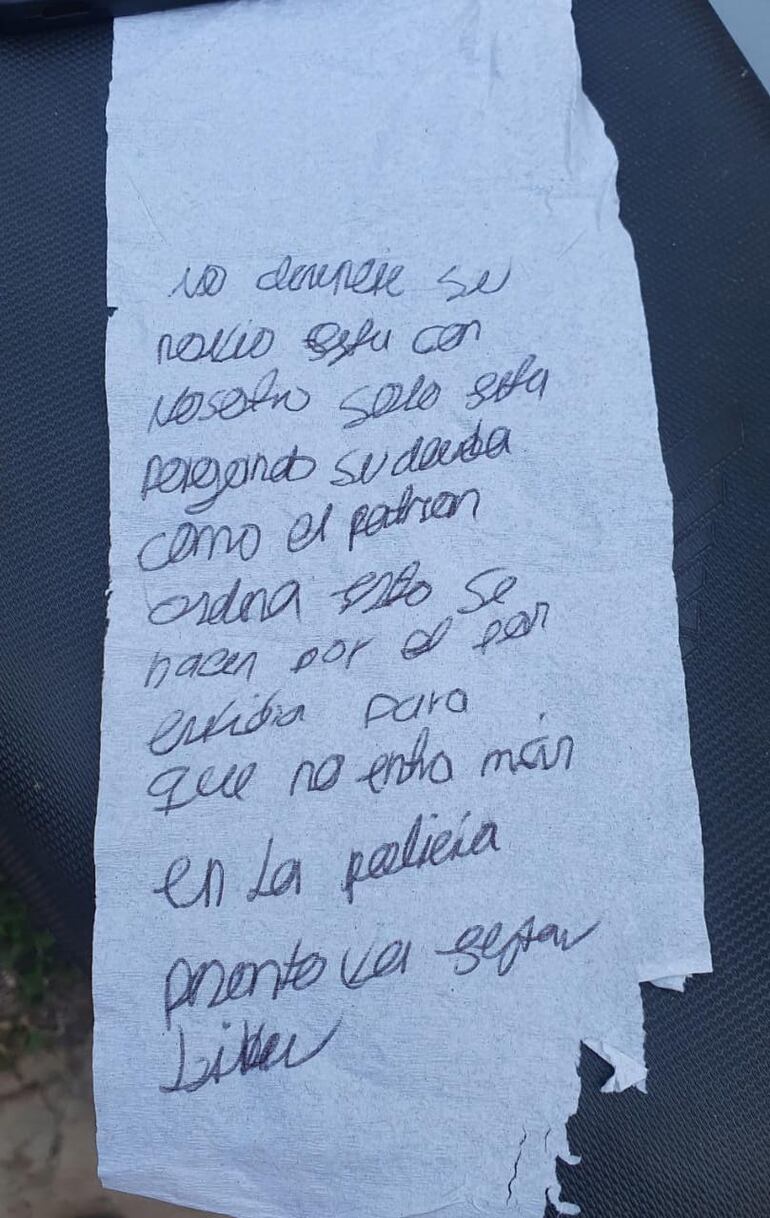 no denuncie su
novio esta con
nosotro solo esta
pagando su deuda
como el patrion
ordena esto se
hacen por el por
envidia para
que no entra más
en la policia
pronto va gestar
libre